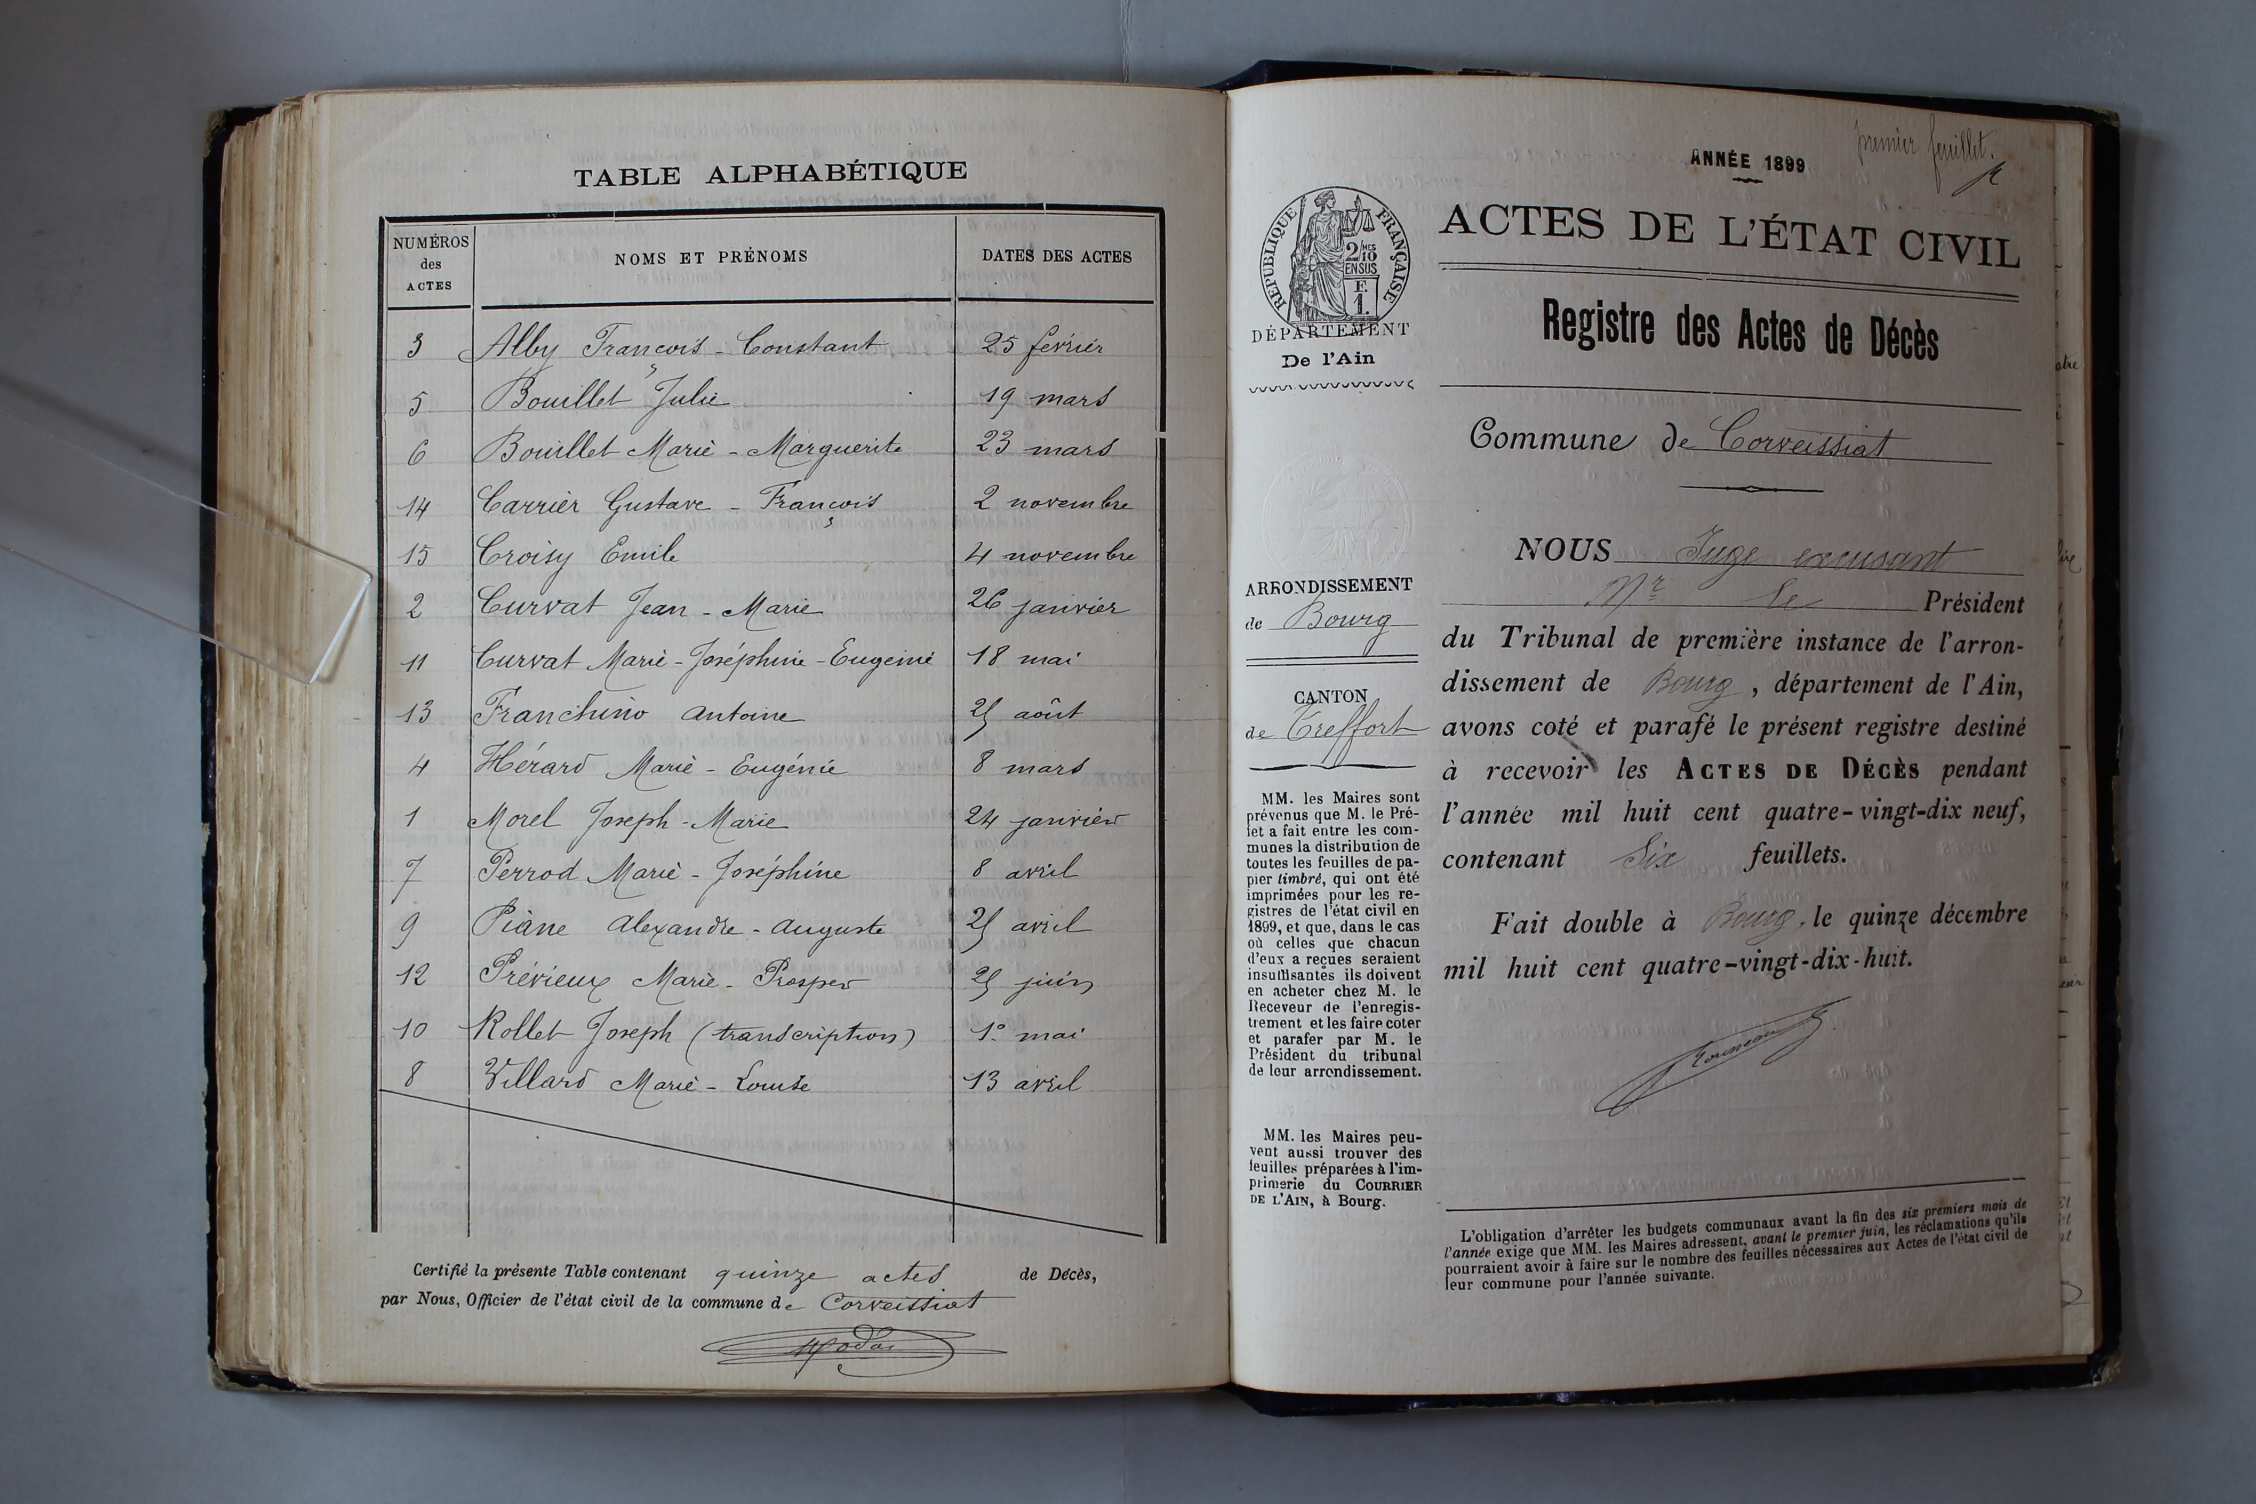 TABLE ALPHABÉTIQUE
NUMÉROS des ACTES NOMS ET PRÉNOMS DATES DES ACTES
3 Alby François-Constant 25 février
5 Bouillet Julie 19 mars
6 Bouillet Marie-Marguerite 23 mars
14 Carrier Gustave-François 2 novembre
15 Croisy Emile 4 novembre
2 Curvat Jean-Marie 26 janvier
11 Curvat Marie-Joséphine-Eugénie 18 mai
13 Franchino Antoine 25 août
4 Hérard Marie-Eugénie 8 mars
1 Morel Joseph-Marie 24 janvier
7 Perrod Marie-Joséphine 8 avril
9 Piane Alexandre-Auguste 25 avril
12 Prévieux Marie-Prosper 25 juin
10 Rollet Joseph (transcription) 1º mai
8 Villard Marie-Louise 13 avril
Certifié la présente Table contenant quinze actes de Décès,
par Nous, Officier de l'état civil de la commune de Corveissiat
premier feuillet.
ANNÉE 1899
ACTES DE L'ÉTAT CIVIL
RÉPUBLIQUE FRANÇAISE
2/10 MES
EN SUS
F.
1.
DÉPARTEMENT
De l'Ain
Registre des Actes de Décès
Commune de Corveissiat
ARRONDISSEMENT
de Bourg
CANTON
de Treffort
MM. les Maires sont
prévenus que M. le Pré-
fet a fait entre les com-
munes la distribution de
toutes les feuilles de pa-
pier timbré, qui ont été
imprimées pour les re-
gistres de l'état civil en
1899, et que, dans le cas
où celles que chacun
d'eux a reçues seraient
insuffisantes ils doivent
en acheter chez M. le
Receveur de l'enregis-
trement et les faire coter
et parafer par M. le
Président du tribunal
de leur arrondissement.
MM. les Maires peu-
vent aussi trouver des
feuilles préparées à l'im-
primerie du COURRIER
DE L'AIN, à Bourg.
NOUS Juge excusant
Mr le Président
du Tribunal de première instance de l'arron-
dissement de Bourg, département de l'Ain,
avons coté et parafé le présent registre destiné
à recevoir les ACTES DE DÉCÈS pendant
l'année mil huit cent quatre-vingt-dix neuf,
contenant Six feuillets.
Fait double à Bourg, le quinze décembre
mil huit cent quatre-vingt-dix-huit.
L'obligation d'arrêter les budgets communaux avant la fin des six premiers mois de
l'année exige que MM. les Maires adressent, avant le premier juin, les réclamations qu'ils
pourraient avoir à faire sur le nombre des feuilles nécessaires aux Actes de l'état civil de
leur commune pour l'année suivante.